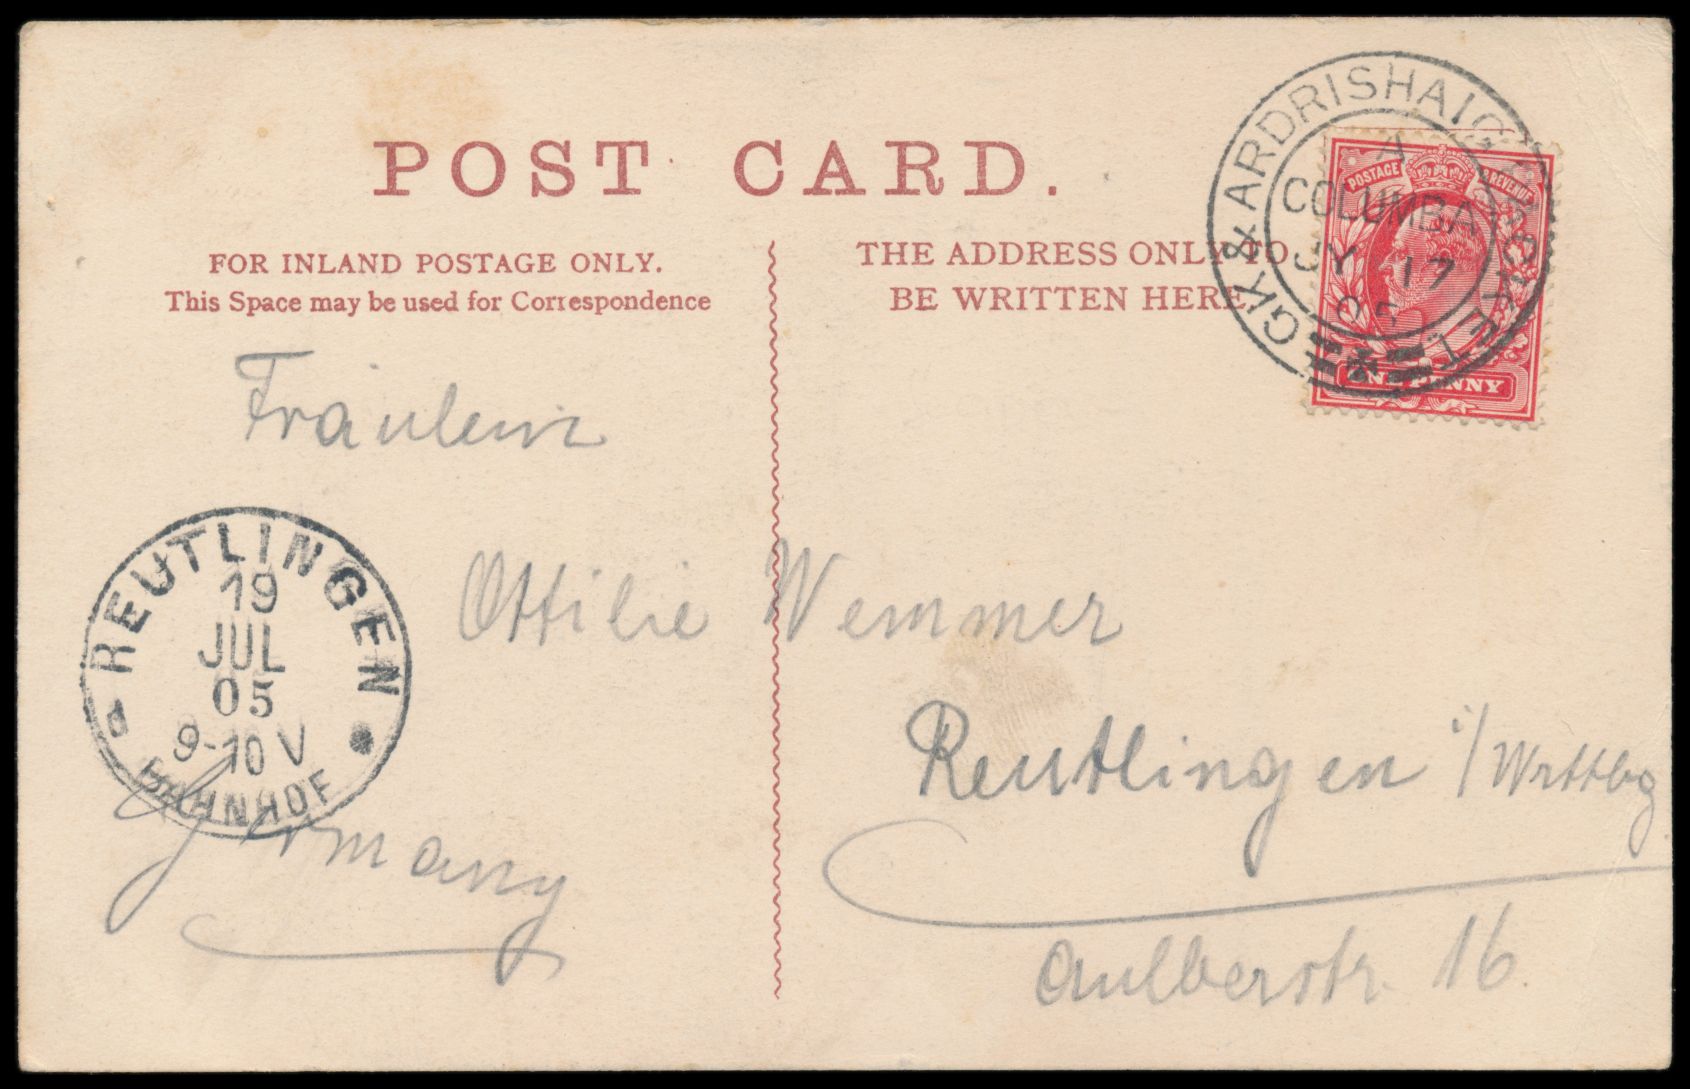 POST CARD.
FOR INLAND POSTAGE ONLY.
This Space may be used for Correspondence
THE ADDRESS ONLY TO
BE WRITTEN HERE
GK & ARDRISHAIG PACKET
A
COLUMBA
JY 17
05
POSTAGE & REVENUE
ONE PENNY
Fräulein
Ottilie Wemmer
Reutlingen i/Wrttbg
Aulberstr. 16.
Germany
REUTLINGEN
19
JUL
05
9-10 V
BAHNHOF